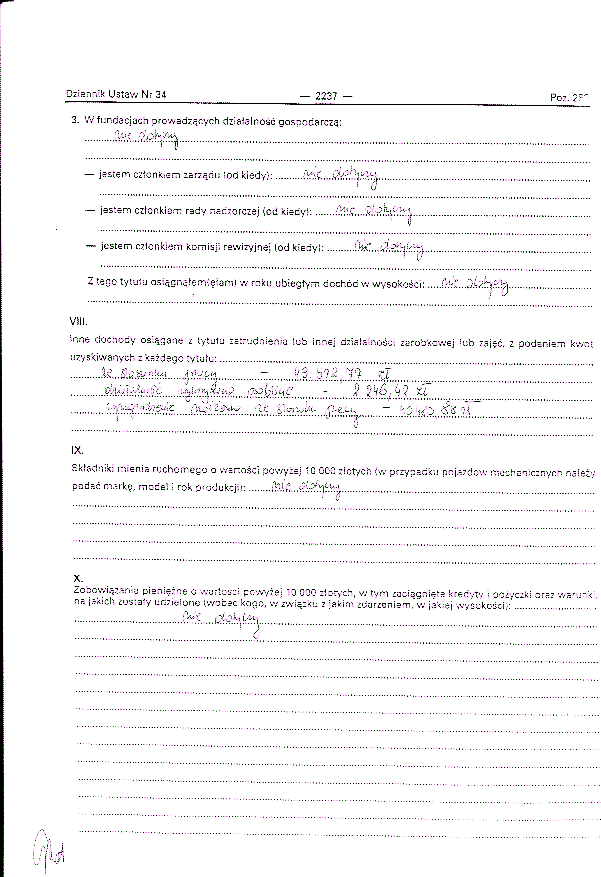 Dziennik Ustaw Nr 34 — 2237 — Poz.
3. W fundacjach prowadzących działalność gospodarczą:
nie dotyczy
— jestem członkiem zarządu (od kiedy): nie dotyczy
— jestem członkiem rady nadzorczej (od kiedy): nie dotyczy
— jestem członkiem komisji rewizyjnej (od kiedy): nie dotyczy
Z tego tytułu osiągnąłem(ęłam) w roku ubiegłym dochód w wysokości: nie dotyczy
VIII.
Inne dochody osiągane z tytułu zatrudnienia lub innej działalności zarobkowej lub zajęć, z podaniem kwot
uzyskiwanych z każdego tytułu:
ze stosunku pracy – zł
działalność wykonywana osobiście – 2 246,42 zł
ze stosunku pracy –
IX.
Składniki mienia ruchomego o wartości powyżej 10 000 złotych (w przypadku pojazdów mechanicznych należy
podać markę, model i rok produkcji): nie dotyczy
X.
Zobowiązania pieniężne o wartości powyżej 10 000 złotych, w tym zaciągnięte kredyty i pożyczki oraz warunki,
na jakich zostały udzielone (wobec kogo, w związku z jakim zdarzeniem, w jakiej wysokości):
nie dotyczy